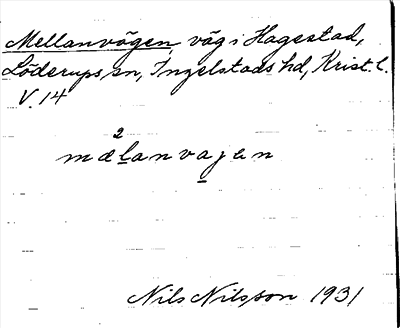 Mellanvägen, väg i Hagestad,
Löderups sn, Ingelstads hd, Krist. l.
V. 14
2
mælanvajen
Nils Nilsson 1931